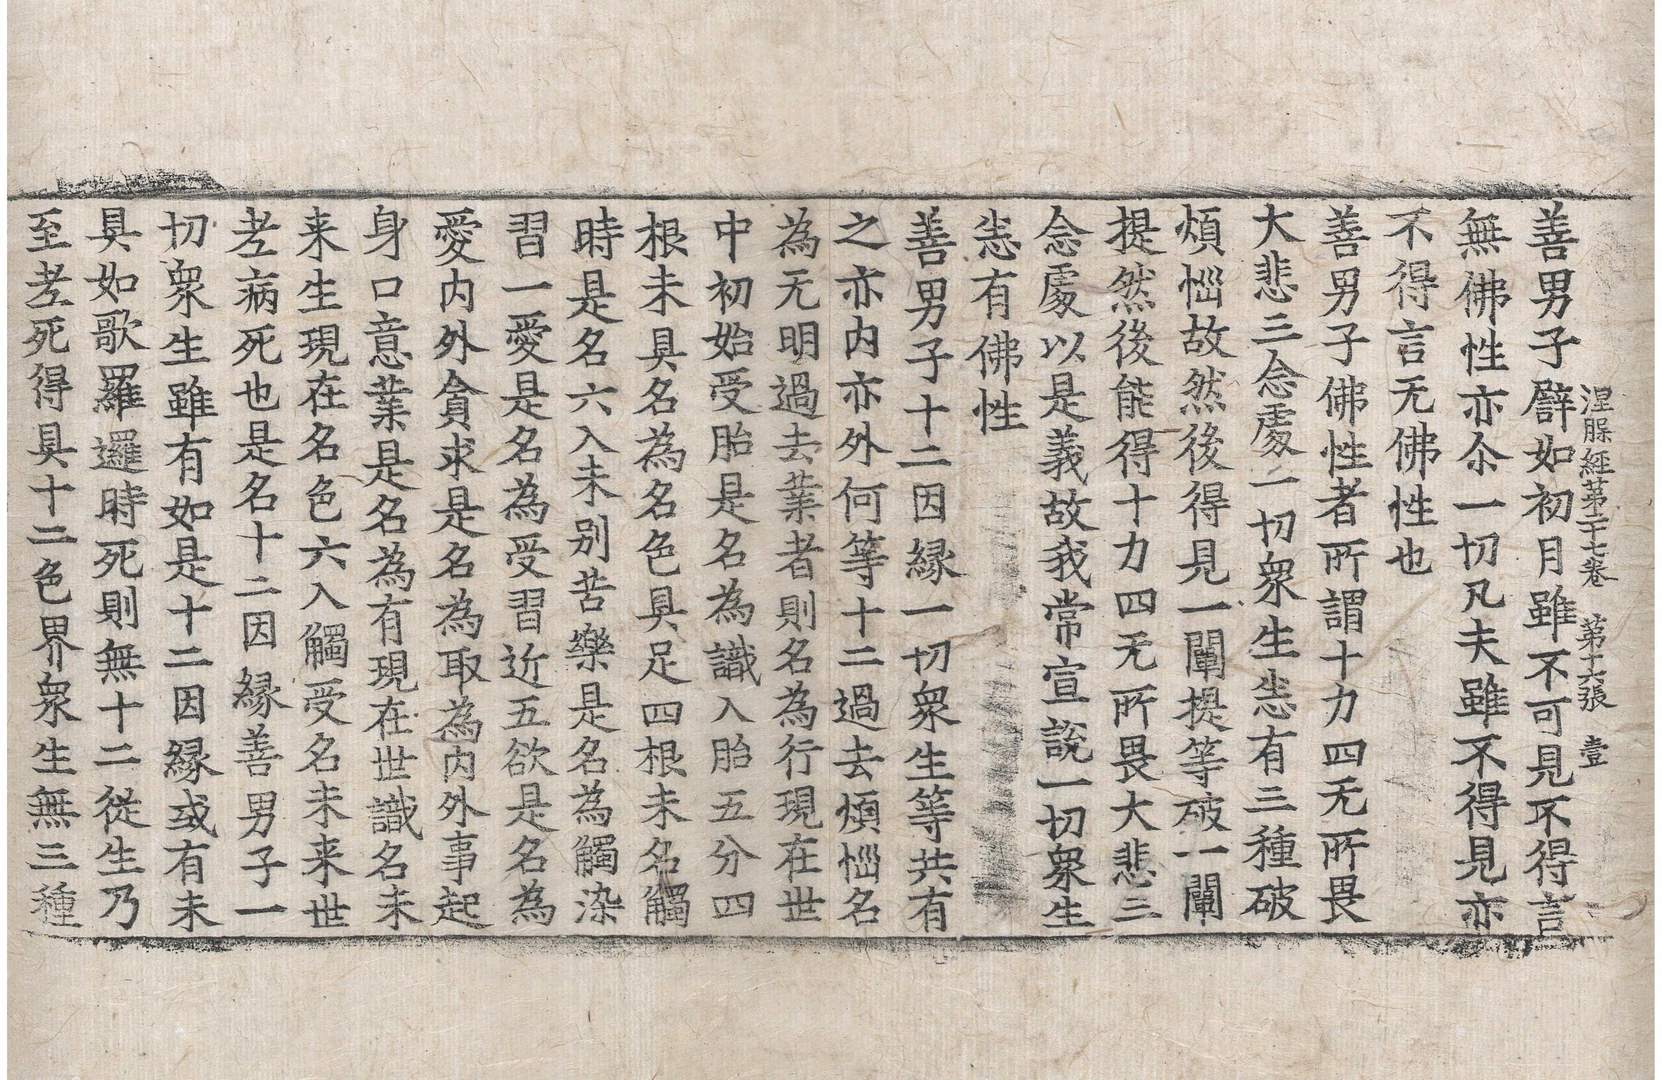 涅槃經第二十七卷　第十六張　壹
善男子譬如初月雖不可見不得言
無佛性亦尒一切凡夫雖不得見亦
不得言无佛性也
善男子佛性者所謂十力四无所畏
大悲三念處一切衆生悉有三種破
煩惱故然後得見一闡提等破一闡
提然後能得十力四无所畏大悲三
念處以是義故我常宣說一切衆生
悉有佛性
善男子十二因緣一切衆生等共有
之亦內亦外何等十二過去煩惱名
為无明過去業者則名為行現在世
中初始受胎是名為識入胎五分四
根未具名為名色具足四根未名觸
時是名六入未別苦樂是名為觸染
習一愛是名為受習近五欲是名為
愛內外貪求是名為取為內外事起
身口意業是名為有現在世識名未
来生現在名色六入觸受名未来世
老病死也是名十二因緣善男子一
切衆生雖有如是十二因緣或有未
具如歌羅邏時死則無十二從生乃
至老死得具十二色界衆生無三種